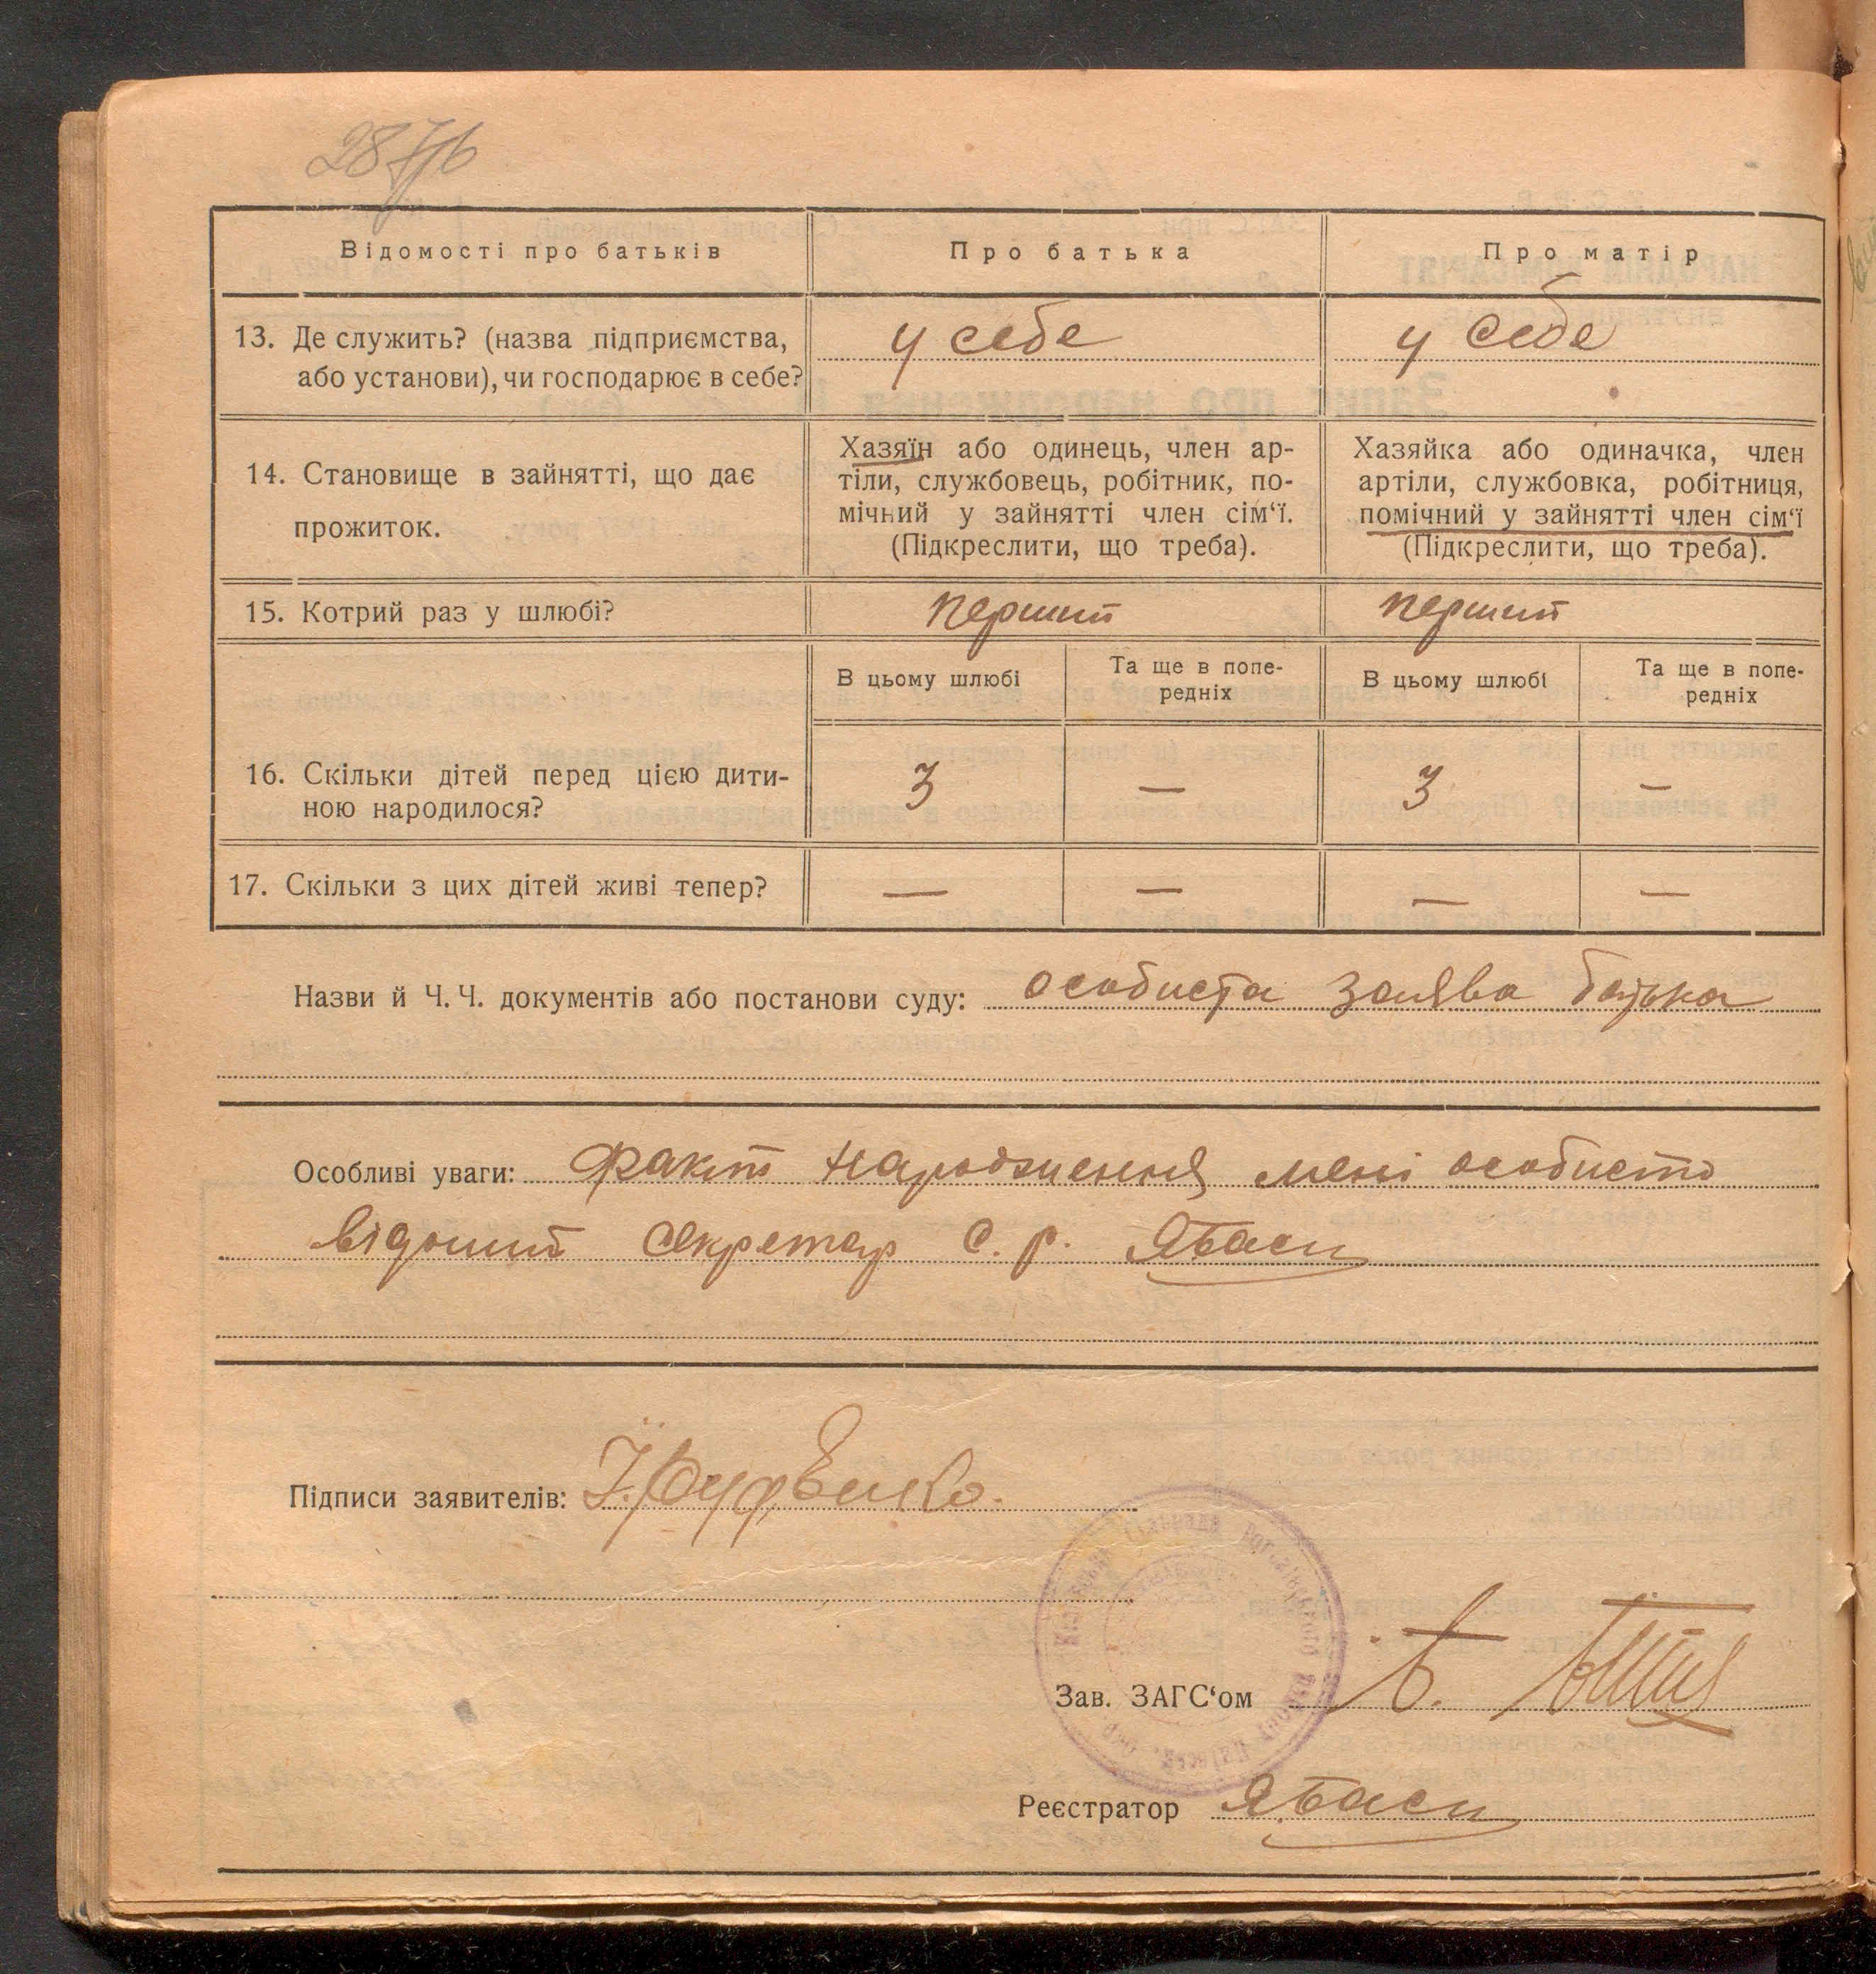 Відомості про батьків
Про батька
Про матір
13. Де служить? (назва підприємства,
або установи), чи господарює в себе?
у себе
у себе
14. Становище в зайнятті, що дає
прожиток.
Хазяїн або одинець, член ар-
тіли, службовець, робітник, по-
мічний у зайнятті член сім‘ї.
(Підкреслити, що треба).
Хазяйка або одиначка, член
артіли, службовка, робітниця,
помічний у зайнятті член сім‘ї
(Підкреслити, що треба).
15. Котрий раз у шлюбі?
перший
перший
В цьому шлюбі
Та ще в попе-
редніх
В цьому шлюбі
Та ще в попе-
редніх
16. Скільки дітей перед цією дити-
ною народилося?
3
—
3
—
17. Скільки з цих дітей живі тепер?
—
—
—
—
Назви й Ч. Ч. документів або постанови суду: особиста заява батька
Особливі уваги: Факт народження мені особисто
відомий секретар с. р.
Підписи заявителів:
Зав. ЗАГС‘ом
Реєстратор